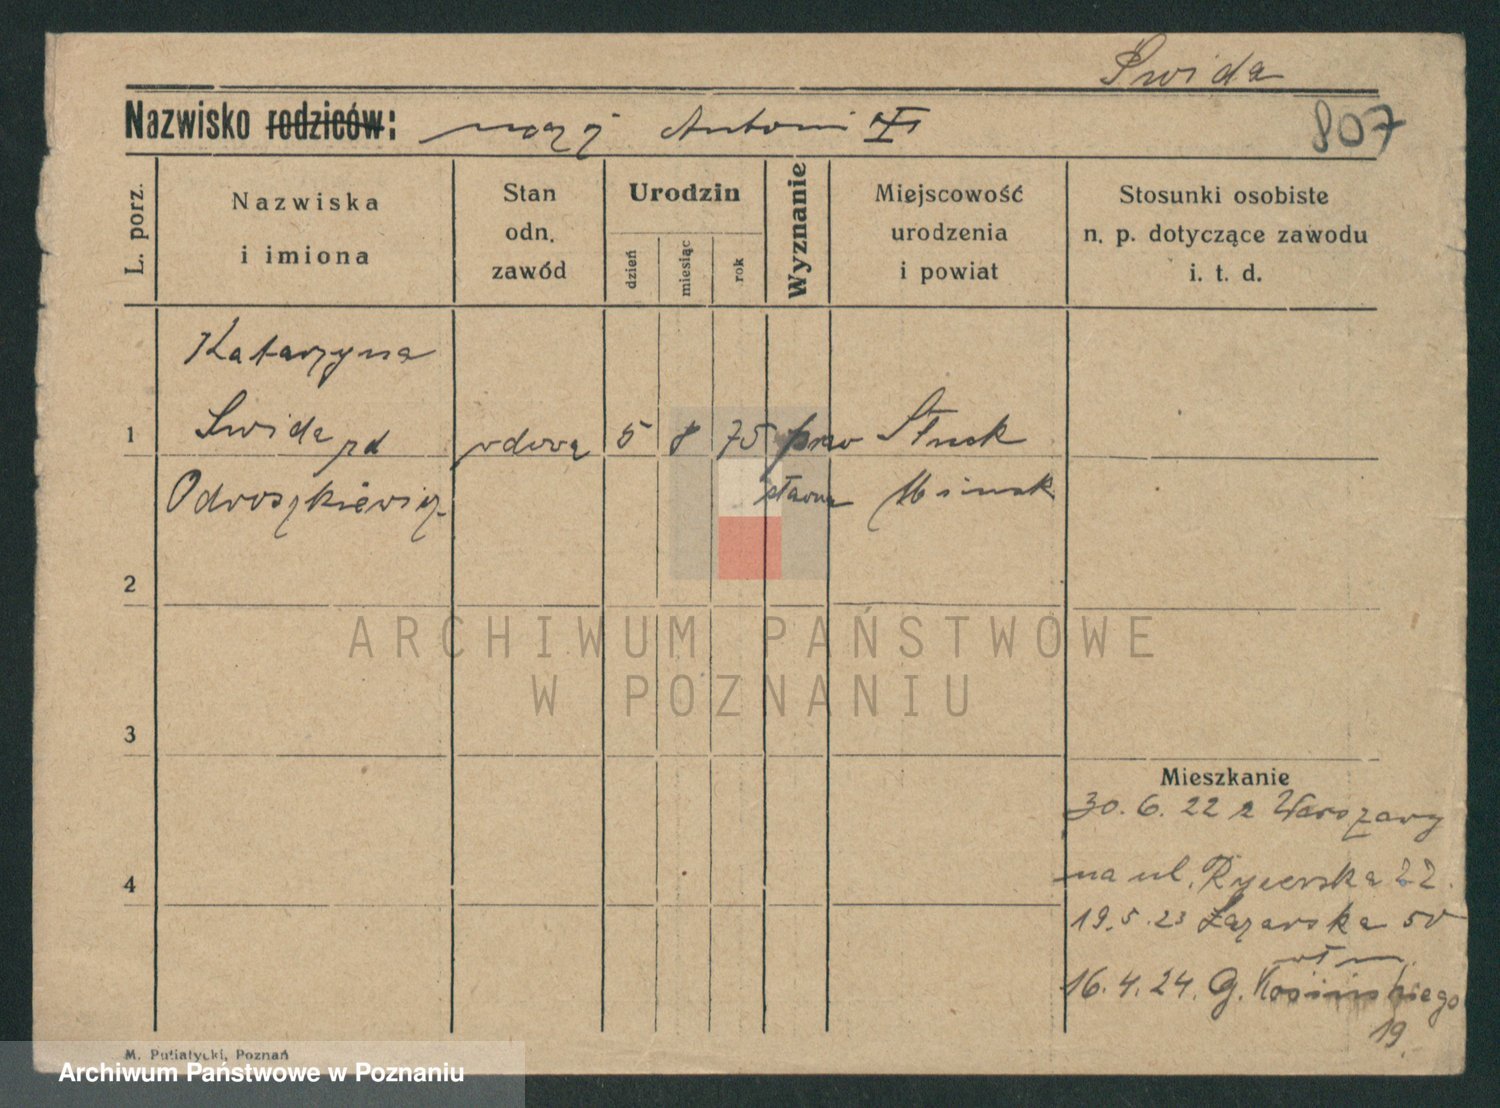 Swida
Nazwisko rodziców: mąż Antoni
807
L. porz.
Nazwiska
i imiona
Stan
odn.
zawód
Urodzin
dzień
miesiąc
rok
Wyznanie
Miejscowość
urodzenia
i powiat
Stosunki osobiste
n. p. dotyczące zawodu
i. t. d.
Katarzyna
1 Swida zd wdowa 5 8 75 praw Słuck
Odroszkiewicz sławna Minsk
2
ARCHIWUM PAŃSTWOWE
W POZNANIU
3
Mieszkanie
30. 6. 22 z Warszawy
na ul. Rycerska 22.
4
19. 5. 23 Łazarska 5
16. 4. 24. G. Kosinskiego
19.
M. Putiatycki, Poznań
Archiwum Państwowe w Poznaniu